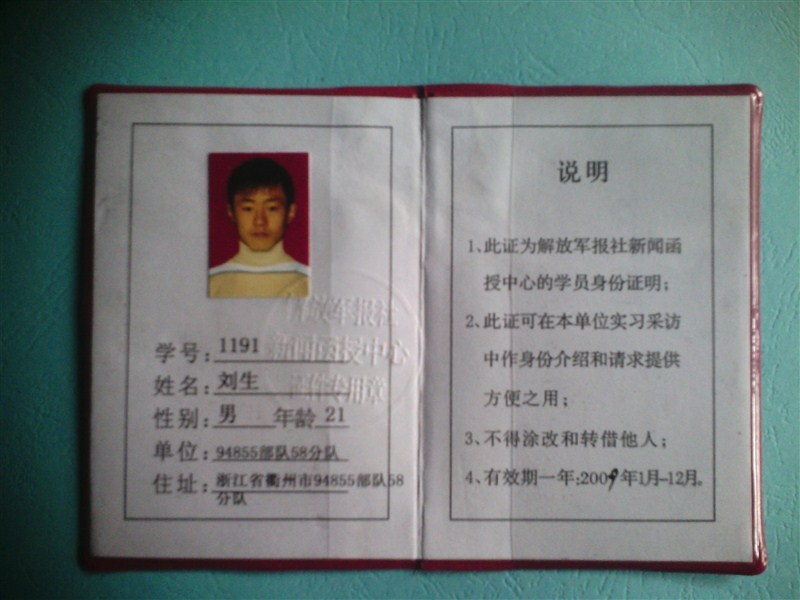 解放军报社
新闻函授中心
证件专用章
学号：1191
姓名：刘生
性别：男 年龄 21
单位：94855部队58分队
住址：浙江省衢州市94855部队58
分队
说明
1、此证为解放军报社新闻函
授中心的学员身份证明；
2、此证可在本单位实习采访
中作身份介绍和请求提供
方便之用；
3、不得涂改和转借他人；
4、有效期一年：2009年1月-12月。